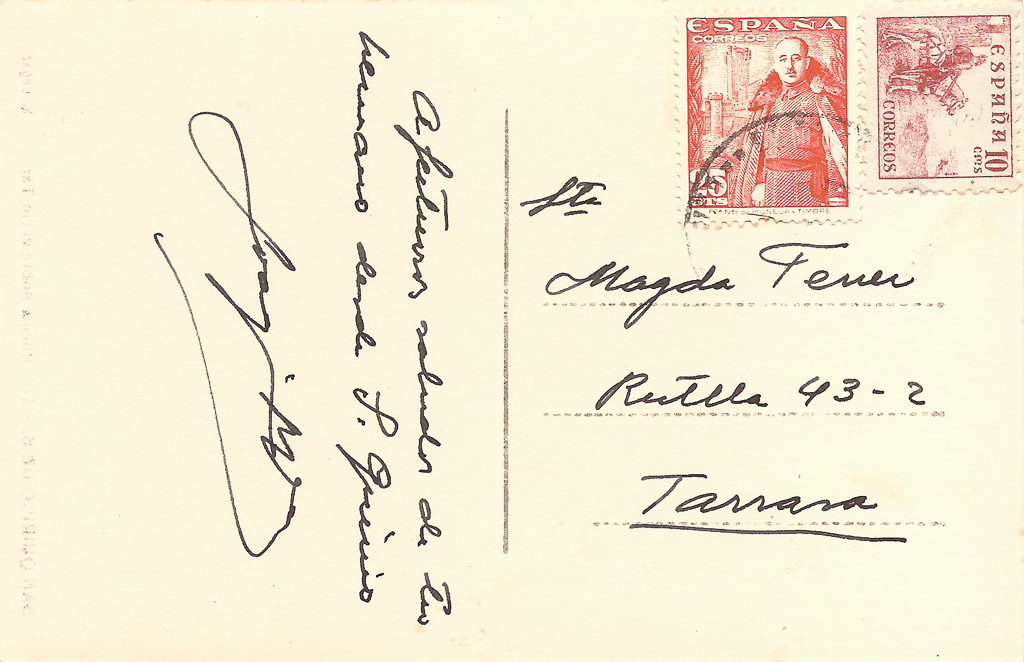 Afectuosos saludos de tu
hermano desde S. Quirico
ESPAÑA
CORREOS
25
CTS
ESPAÑA 10
CTMS
CORREOS
Sta
Magda Ferrer
Rutlla 43-2
Tarrasa